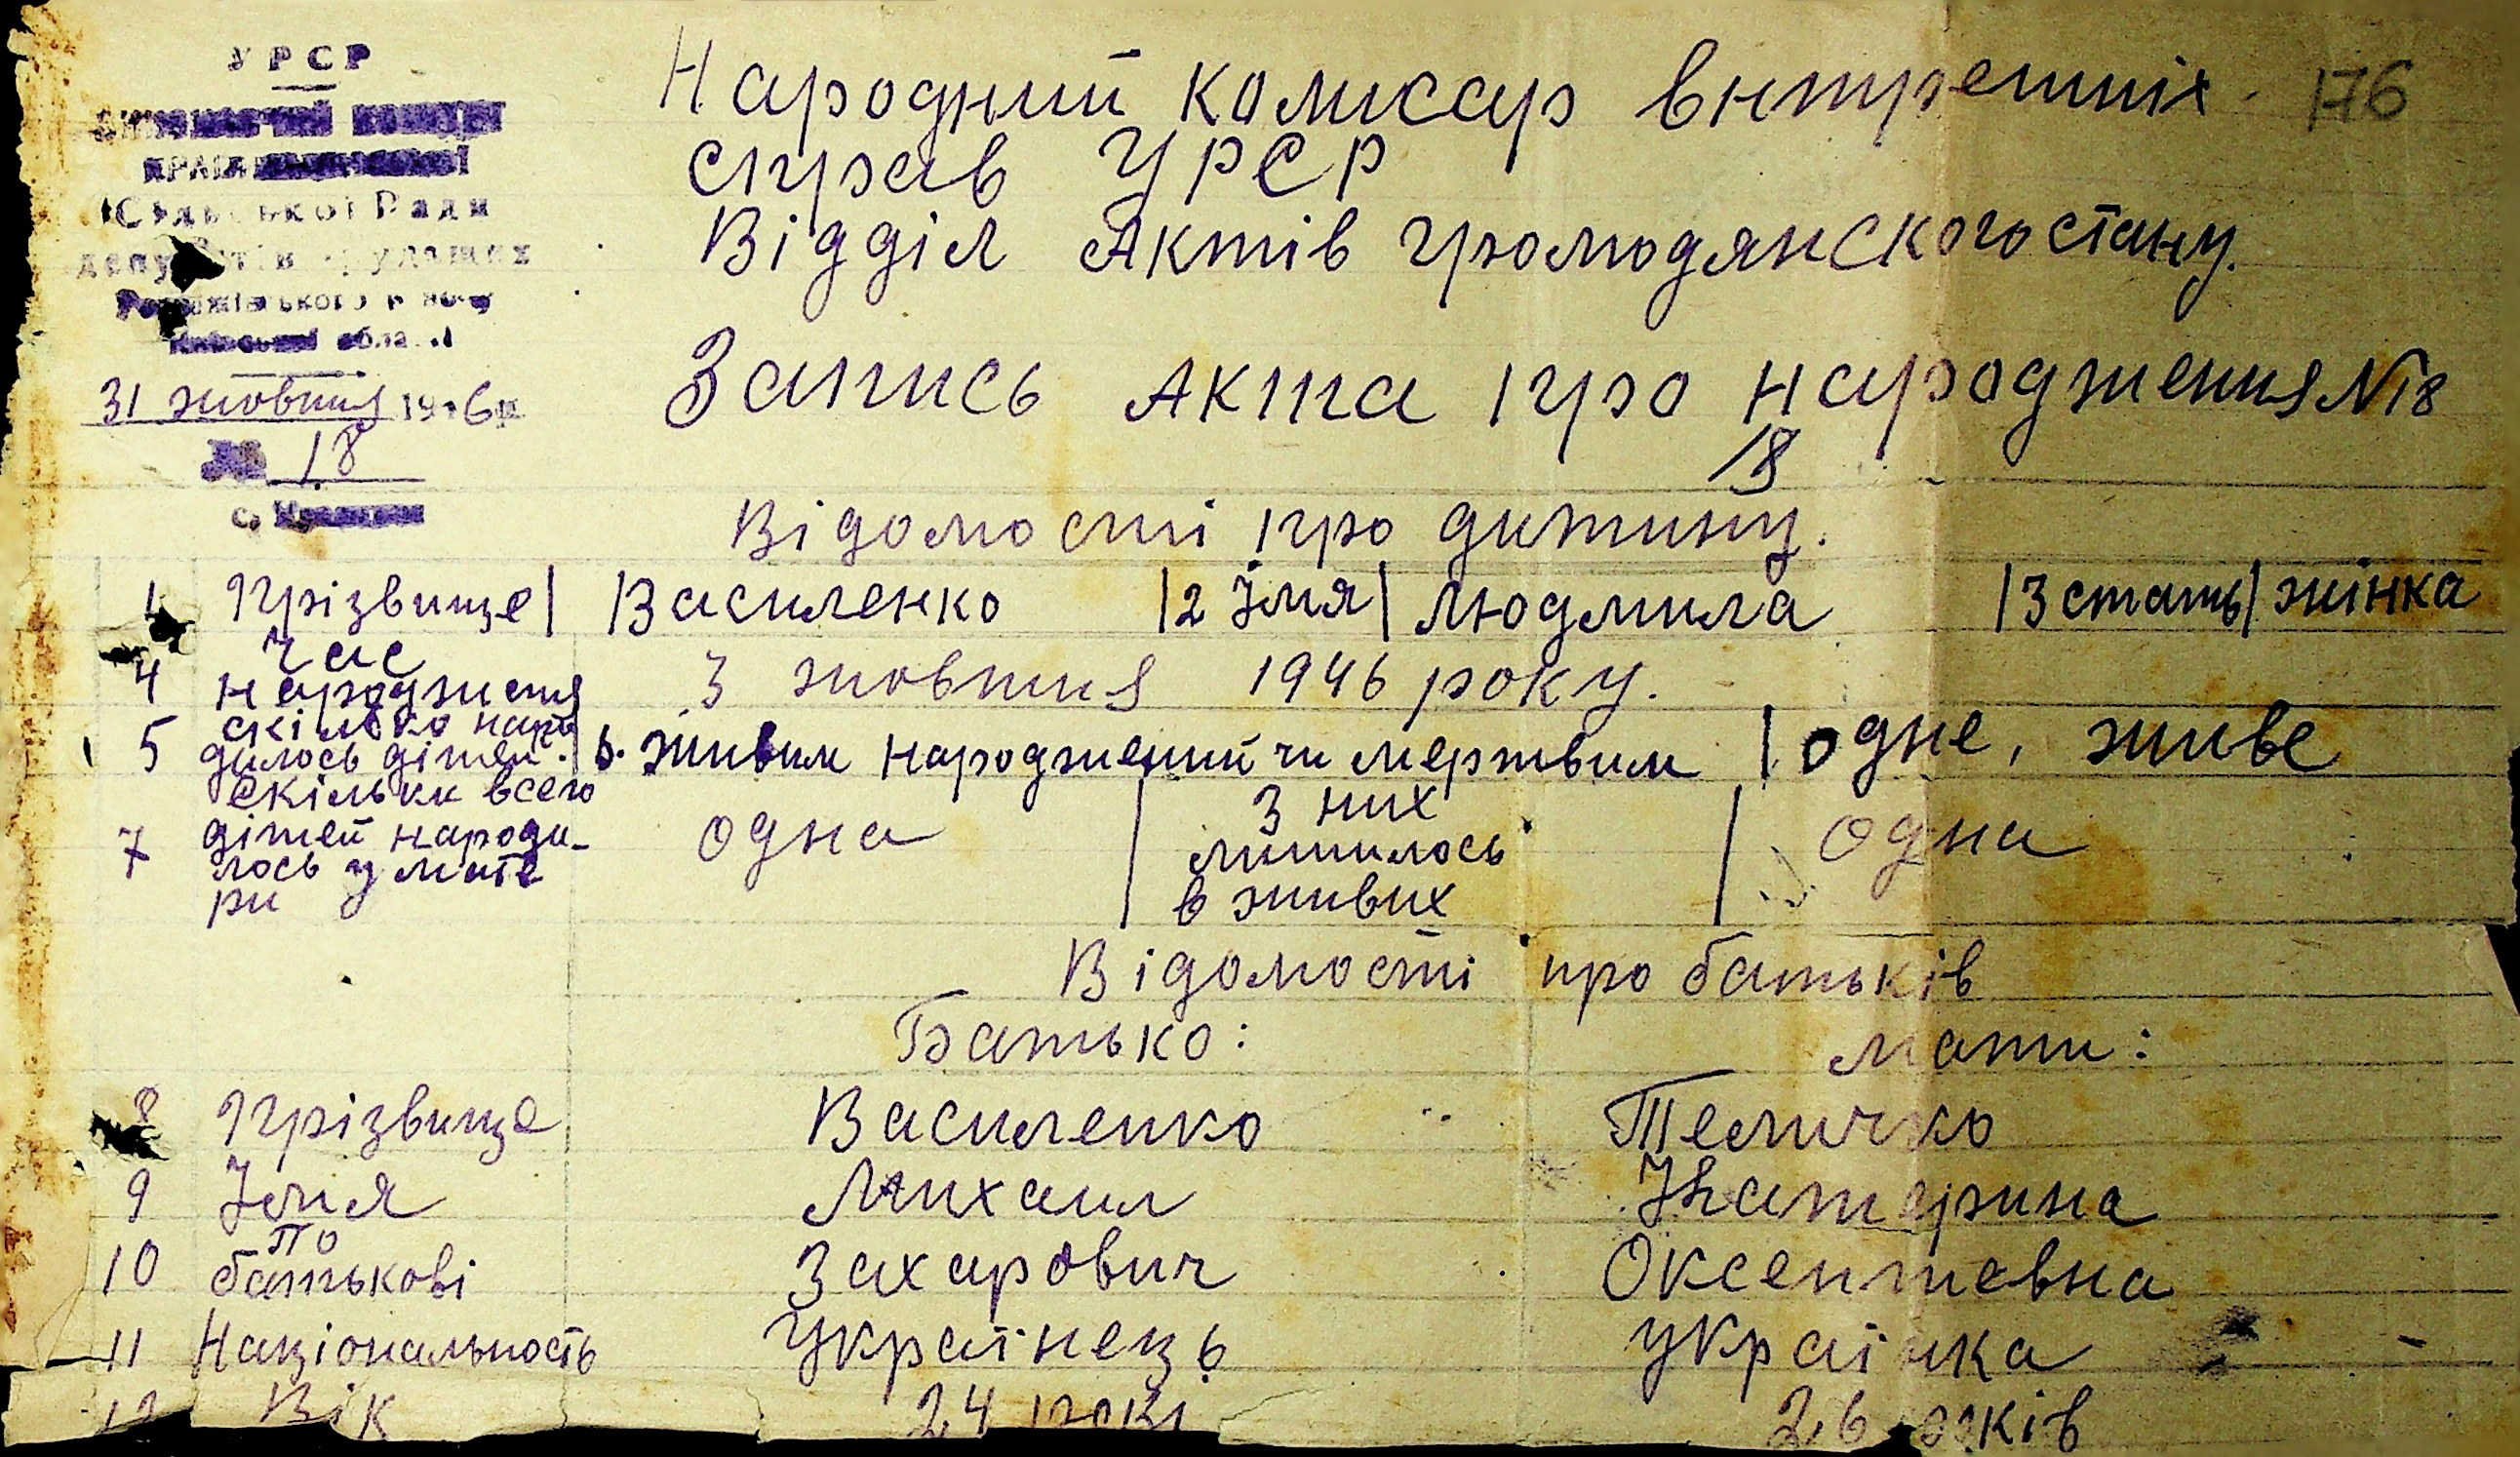 УРСР
Сільської Ради
депутатів трудящих
Київської області
31 жовтня 1946 р
18
с.
176
Народний комисар внутрешніх
справ УРСР
Відділ Актів громодянского стану.
Запись Акта про народження N18
18
Відомости про дитину.
1 Прізвище | Василенко | 2 Імя | Людмила | 3 стать | жінка
4 Час народження 3 жовтня 1946 року.
5 скілько народилось дітей. | 6. Живим народжений чи мертвим | Одне, живе
7 скільки всего дітей народилось у матери одна | З них лишилось в живих | Одна
Відомости про батьків
Батько: Мати:
8 Прізвище Василенко Теличко
9 Імя Михаил Катерина
10 По батькові Захарович Оксентевна
11 Національность Українець українка
12 Вік 24 рокі 26 років